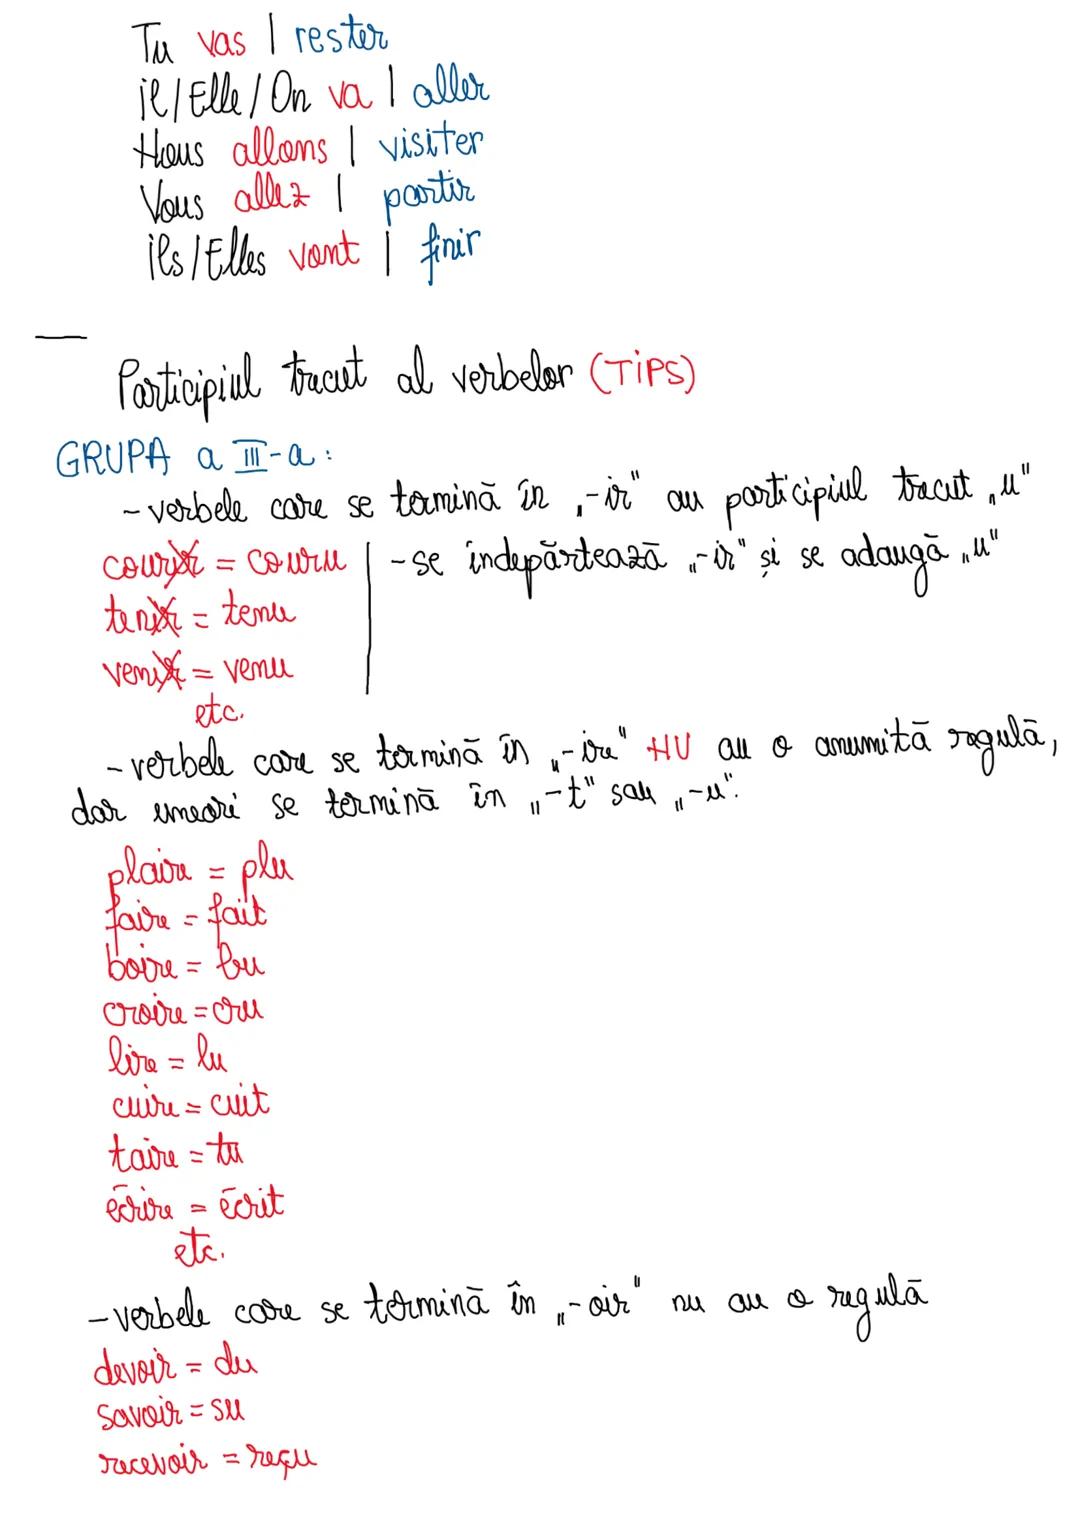 Tu vas | rester
il/Elle/On va | aller
Nous allons | visiter
Vous allez | partir
ils/Elles vont | finir
Participiul trecut al verbelor (TiPS)
GRUPA a III-a:
-verbele care se termină în „-ir" au participiul trecut „u"
courir = couru | -se îndepărtează „-ir" și se adaugă „u"
tenir = tenu
venir = venu
etc.
-verbele care se termină în „-ire" NU au o anumită regulă,
dar uneori se termină în „-t" sau „-u".
plaire = plu
faire = fait
boire = bu
croire = cru
lire = lu
cuire = cuit
taire = tu
écrire = écrit
etc.
-verbele care se termină în „-oir" nu au o regulă
devoir = du
savoir = su
recevoir = reçu